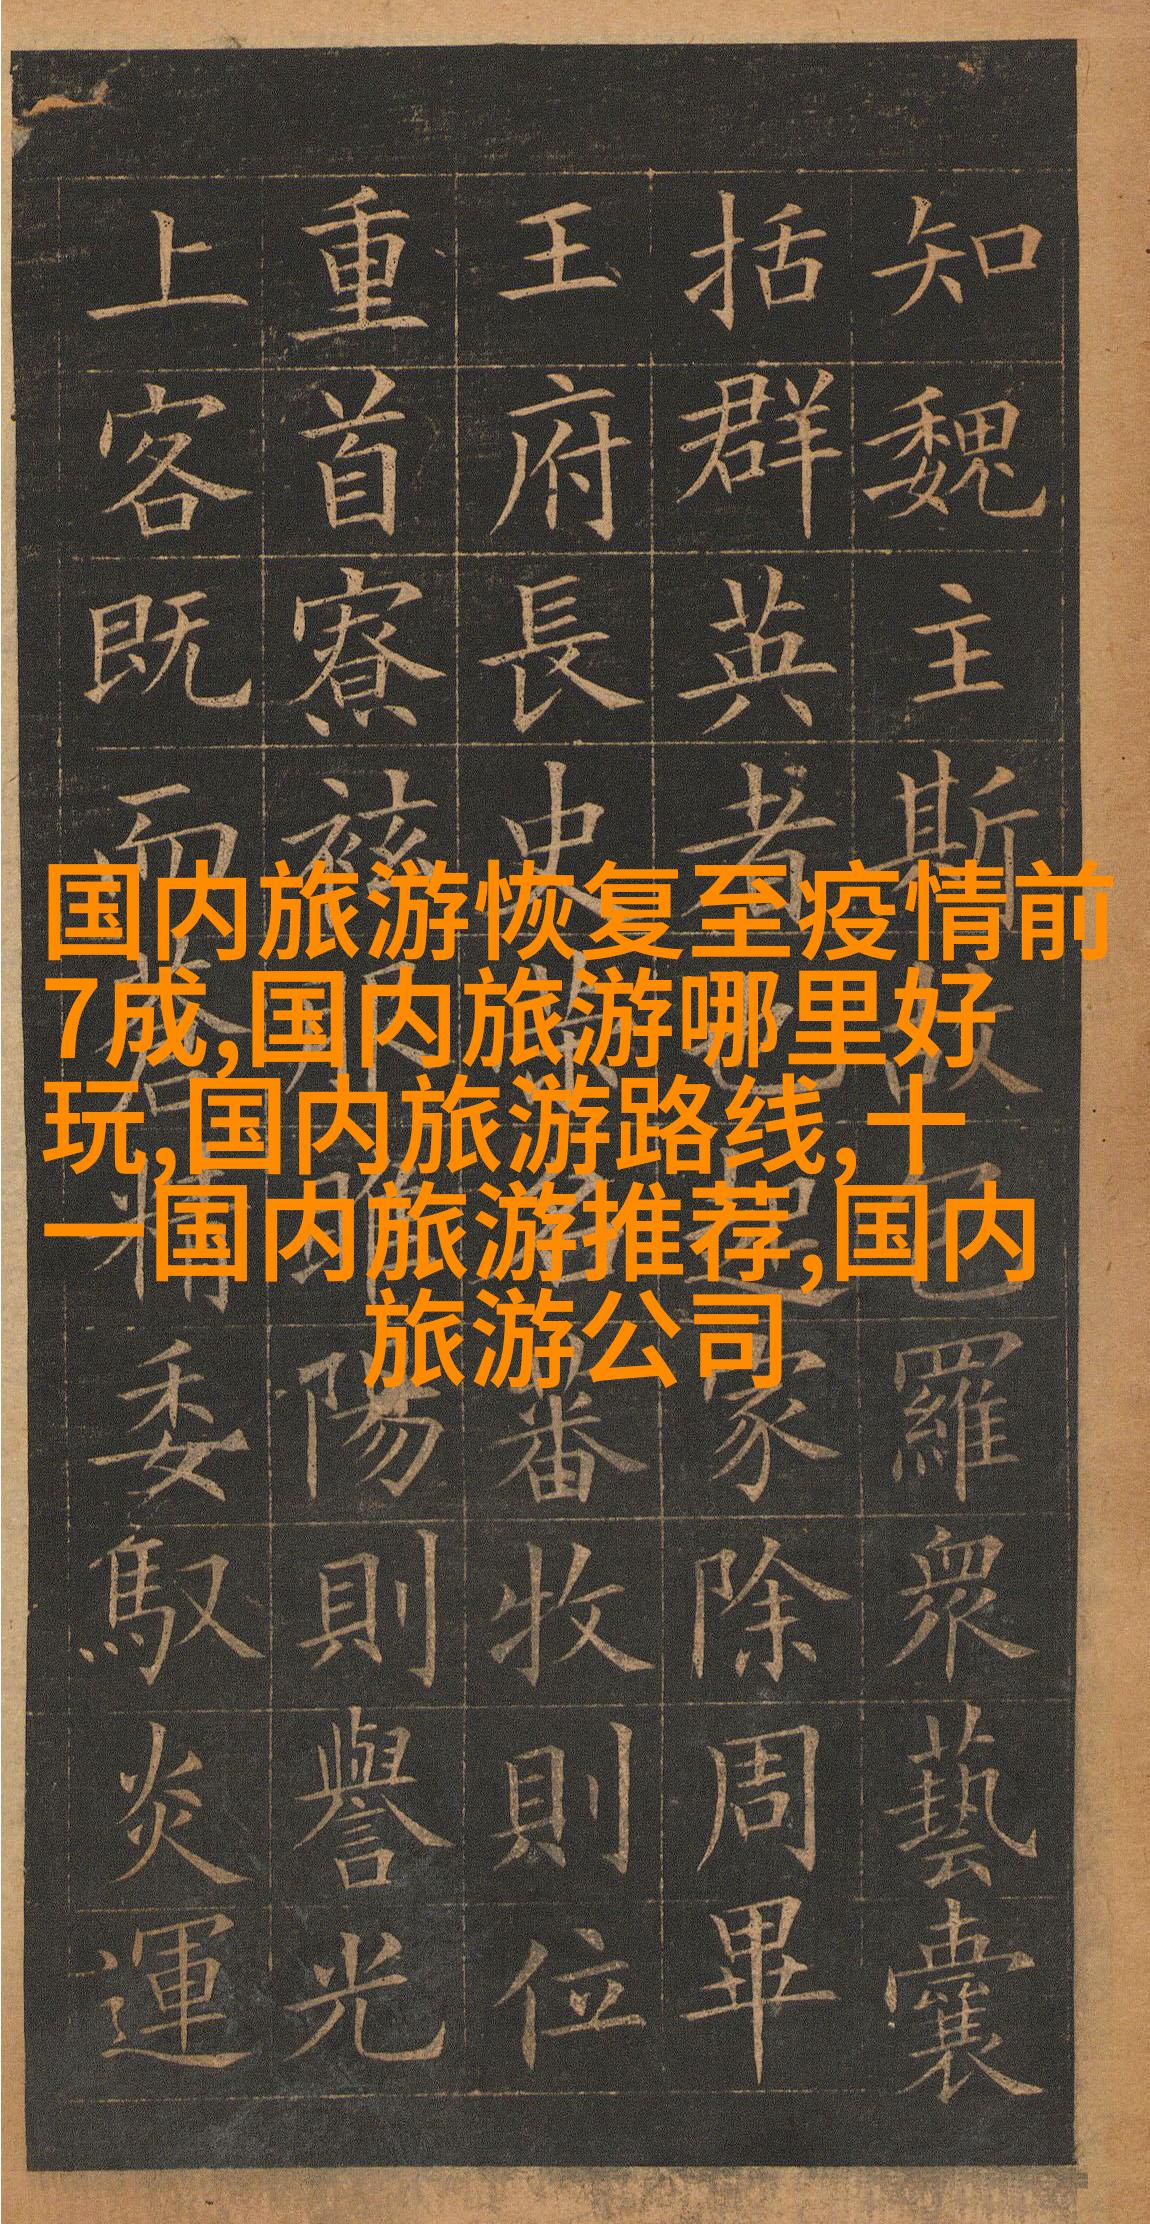 国内旅游恢复至疫情前
7成,国内旅游哪里好
玩,国内旅游路线,十
一国内旅游推荐,国内
旅游公司
知魏主斯故包羅衆藝囊
括群英者也起家除周畢
王府長史蕃牧則位
重首寮陽則譽光
上客既而蒼精委馭炎運